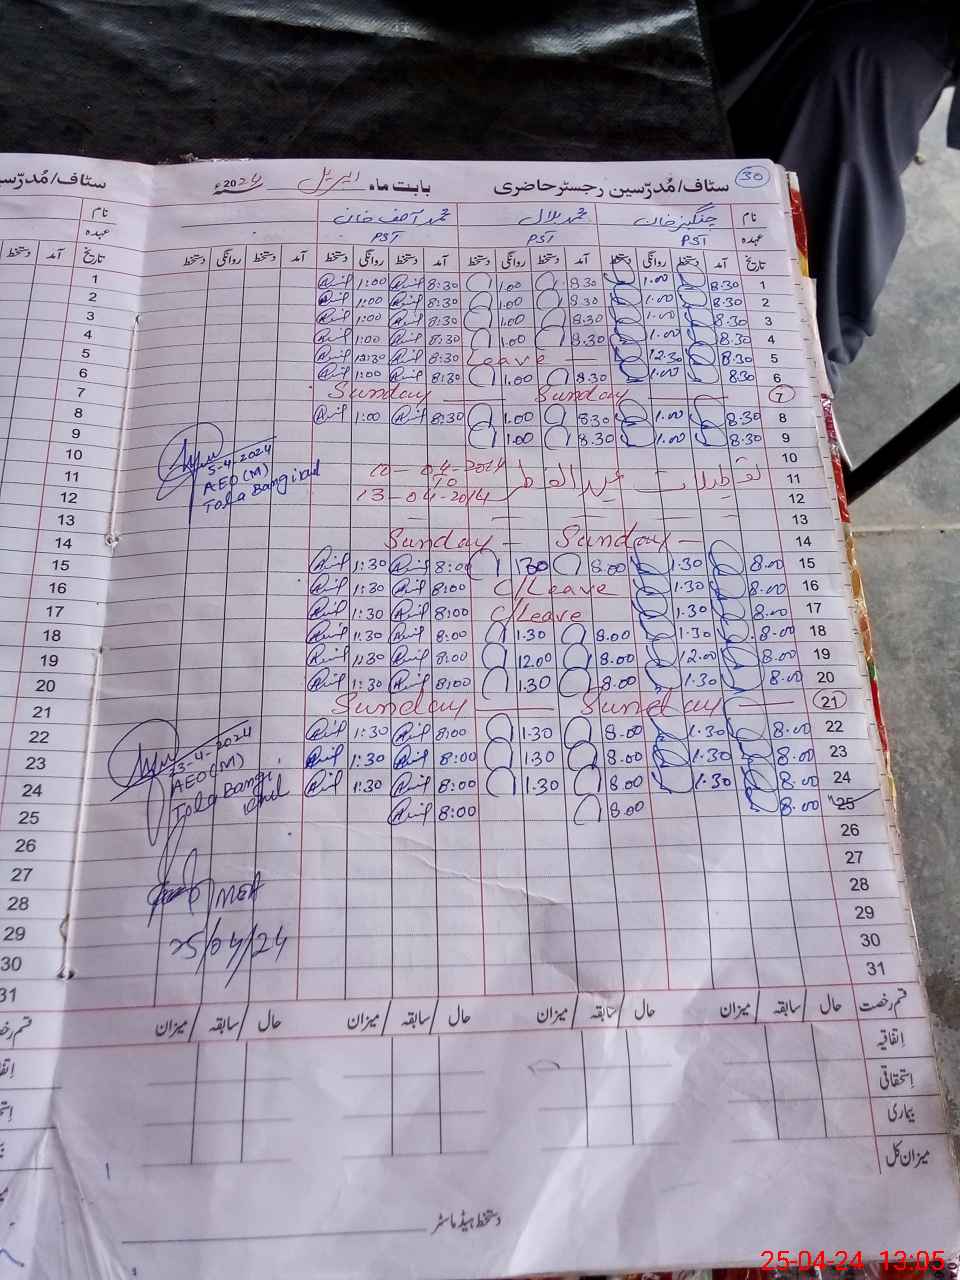 سٹاف/مُدرّسین رجسٹر حاضری بابت ماہ اپریل 2024ء 30
نام چنگیز خان محمد بلال محمد آصف خان
عہدہ PST PST PST
تاریخ آمد دستخط روانگی دستخط آمد دستخط روانگی دستخط آمد دستخط روانگی دستخط آمد دستخط روانگی دستخط
1 8.30 1.00 8.30 1.00 8:30 1:00
2 8.30 1.00 8.30 1.00 8:30 1:00
3 8.30 1.00 8.30 1.00 8:30 1:00
4 8.30 1.00 8.30 1.00 8:30 1:00
5 8.30 12.30 Leave 8:30 12:30
6 8.30 1.00 8.30 1.00 8:30 1:00
7 Sunday Sunday
8 8.30 1.00 8.30 1.00 8:30 1:00
9 8.30 1.00 8.30 1.00
5-4-2024
AEO(M)
10
11 تعطیلات عید الفطر 10-04-2024
TO
12 13-04-2024
13
14 Sunday - Sunday -
15 8.00 1.30 8.00 1:30 8:00 1:30
16 8.00 1.30 C/Leave 8:00 1:30
17 8.00 1.30 C/Leave 8:00 1:30
18 8.00 1.30 8.00 1.30 8:00 1:30
19 8.00 12.00 8.00 12.00 8:00 11:30
20 8.00 1.30 8.00 1.30 8:00 1:30
21 Sunday Sunday
22 8.00 1.30 8.00 1.30 8:00 1:30
23 8.00 1.30 8.00 1.30 8:00 1:30
24 8.00 1.30 8.00 1.30 8:00 1:30
25 8.00 8.00 8:00
23-4-2024
AEO(M)
26
27
28
MEA
29
30
25/04/24
31
قسم رخصت حال سابقہ میزان حال سابقہ میزان حال سابقہ میزان حال سابقہ میزان
اِتفاقیہ
اِستحقاقی
بیماری
میزان کل
دستخط ہیڈ ماسٹر
سٹاف/مُدرّسین
نام
عہدہ
تاریخ آمد دستخط
1
2
3
4
5
6
7
8
9
10
11
12
13
14
15
16
17
18
19
20
21
22
23
24
25
26
27
28
29
30
31
25-04-24 13:05